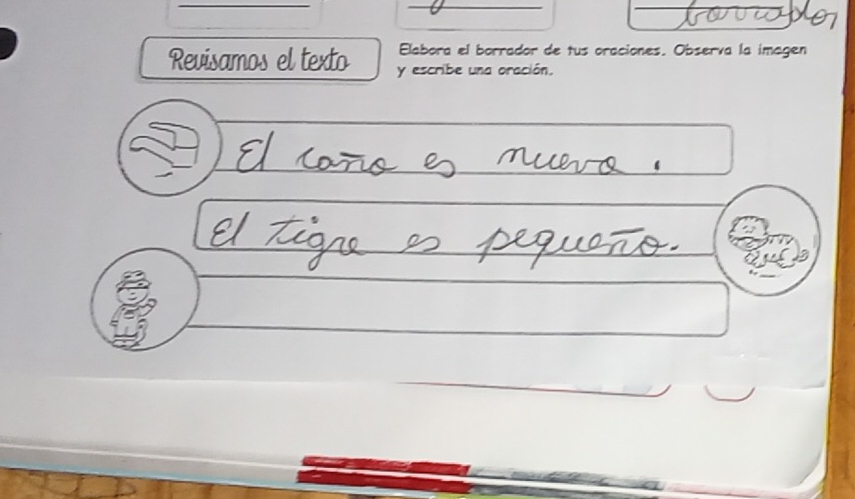 borrador
Revisamos el texto
Elabora el borrador de tus oraciones. Observa la imagen
y escribe una oración.
El caño es nuevo.
El tigre es pequeño.